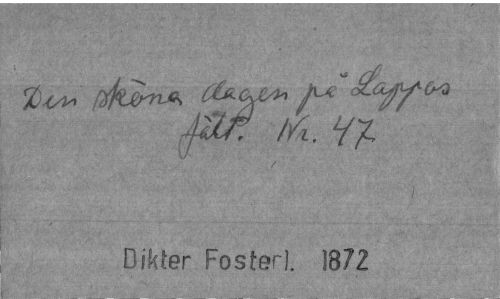 Den sköna dagen på Lappos
fält. Nr. 47
Dikter Fosterl. 1872